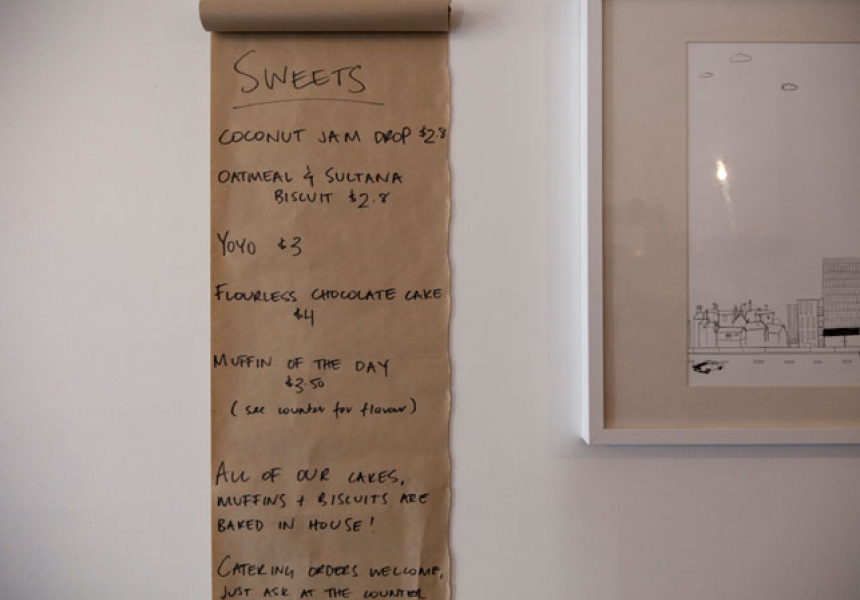 SWEETS
COCONUT JAM DROP $2.8
OATMEAL & SULTANA
BISCUIT $2.8
YOYO $3
FLOURLESS CHOCOLATE CAKE
$4
MUFFIN OF THE DAY
$3.50
(see counter for flavour)
ALL OF OUR CAKES,
MUFFINS + BISCUITS ARE
BAKED IN HOUSE!
CATERING ORDERS WELCOME,
JUST ASK AT THE COUNTER